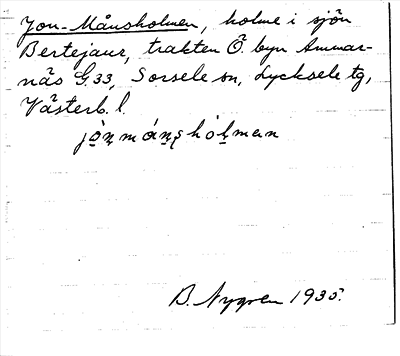 Jon-Månsholmen, holme i sjön
Bertejaur, trakten Ö. byn Ammar-
näs G.33, Sorsele sn, Lycksele tg,
Västerb. l.
jo̠n̥má̠n̥sho̍l̥man
B. Nygren 1935.